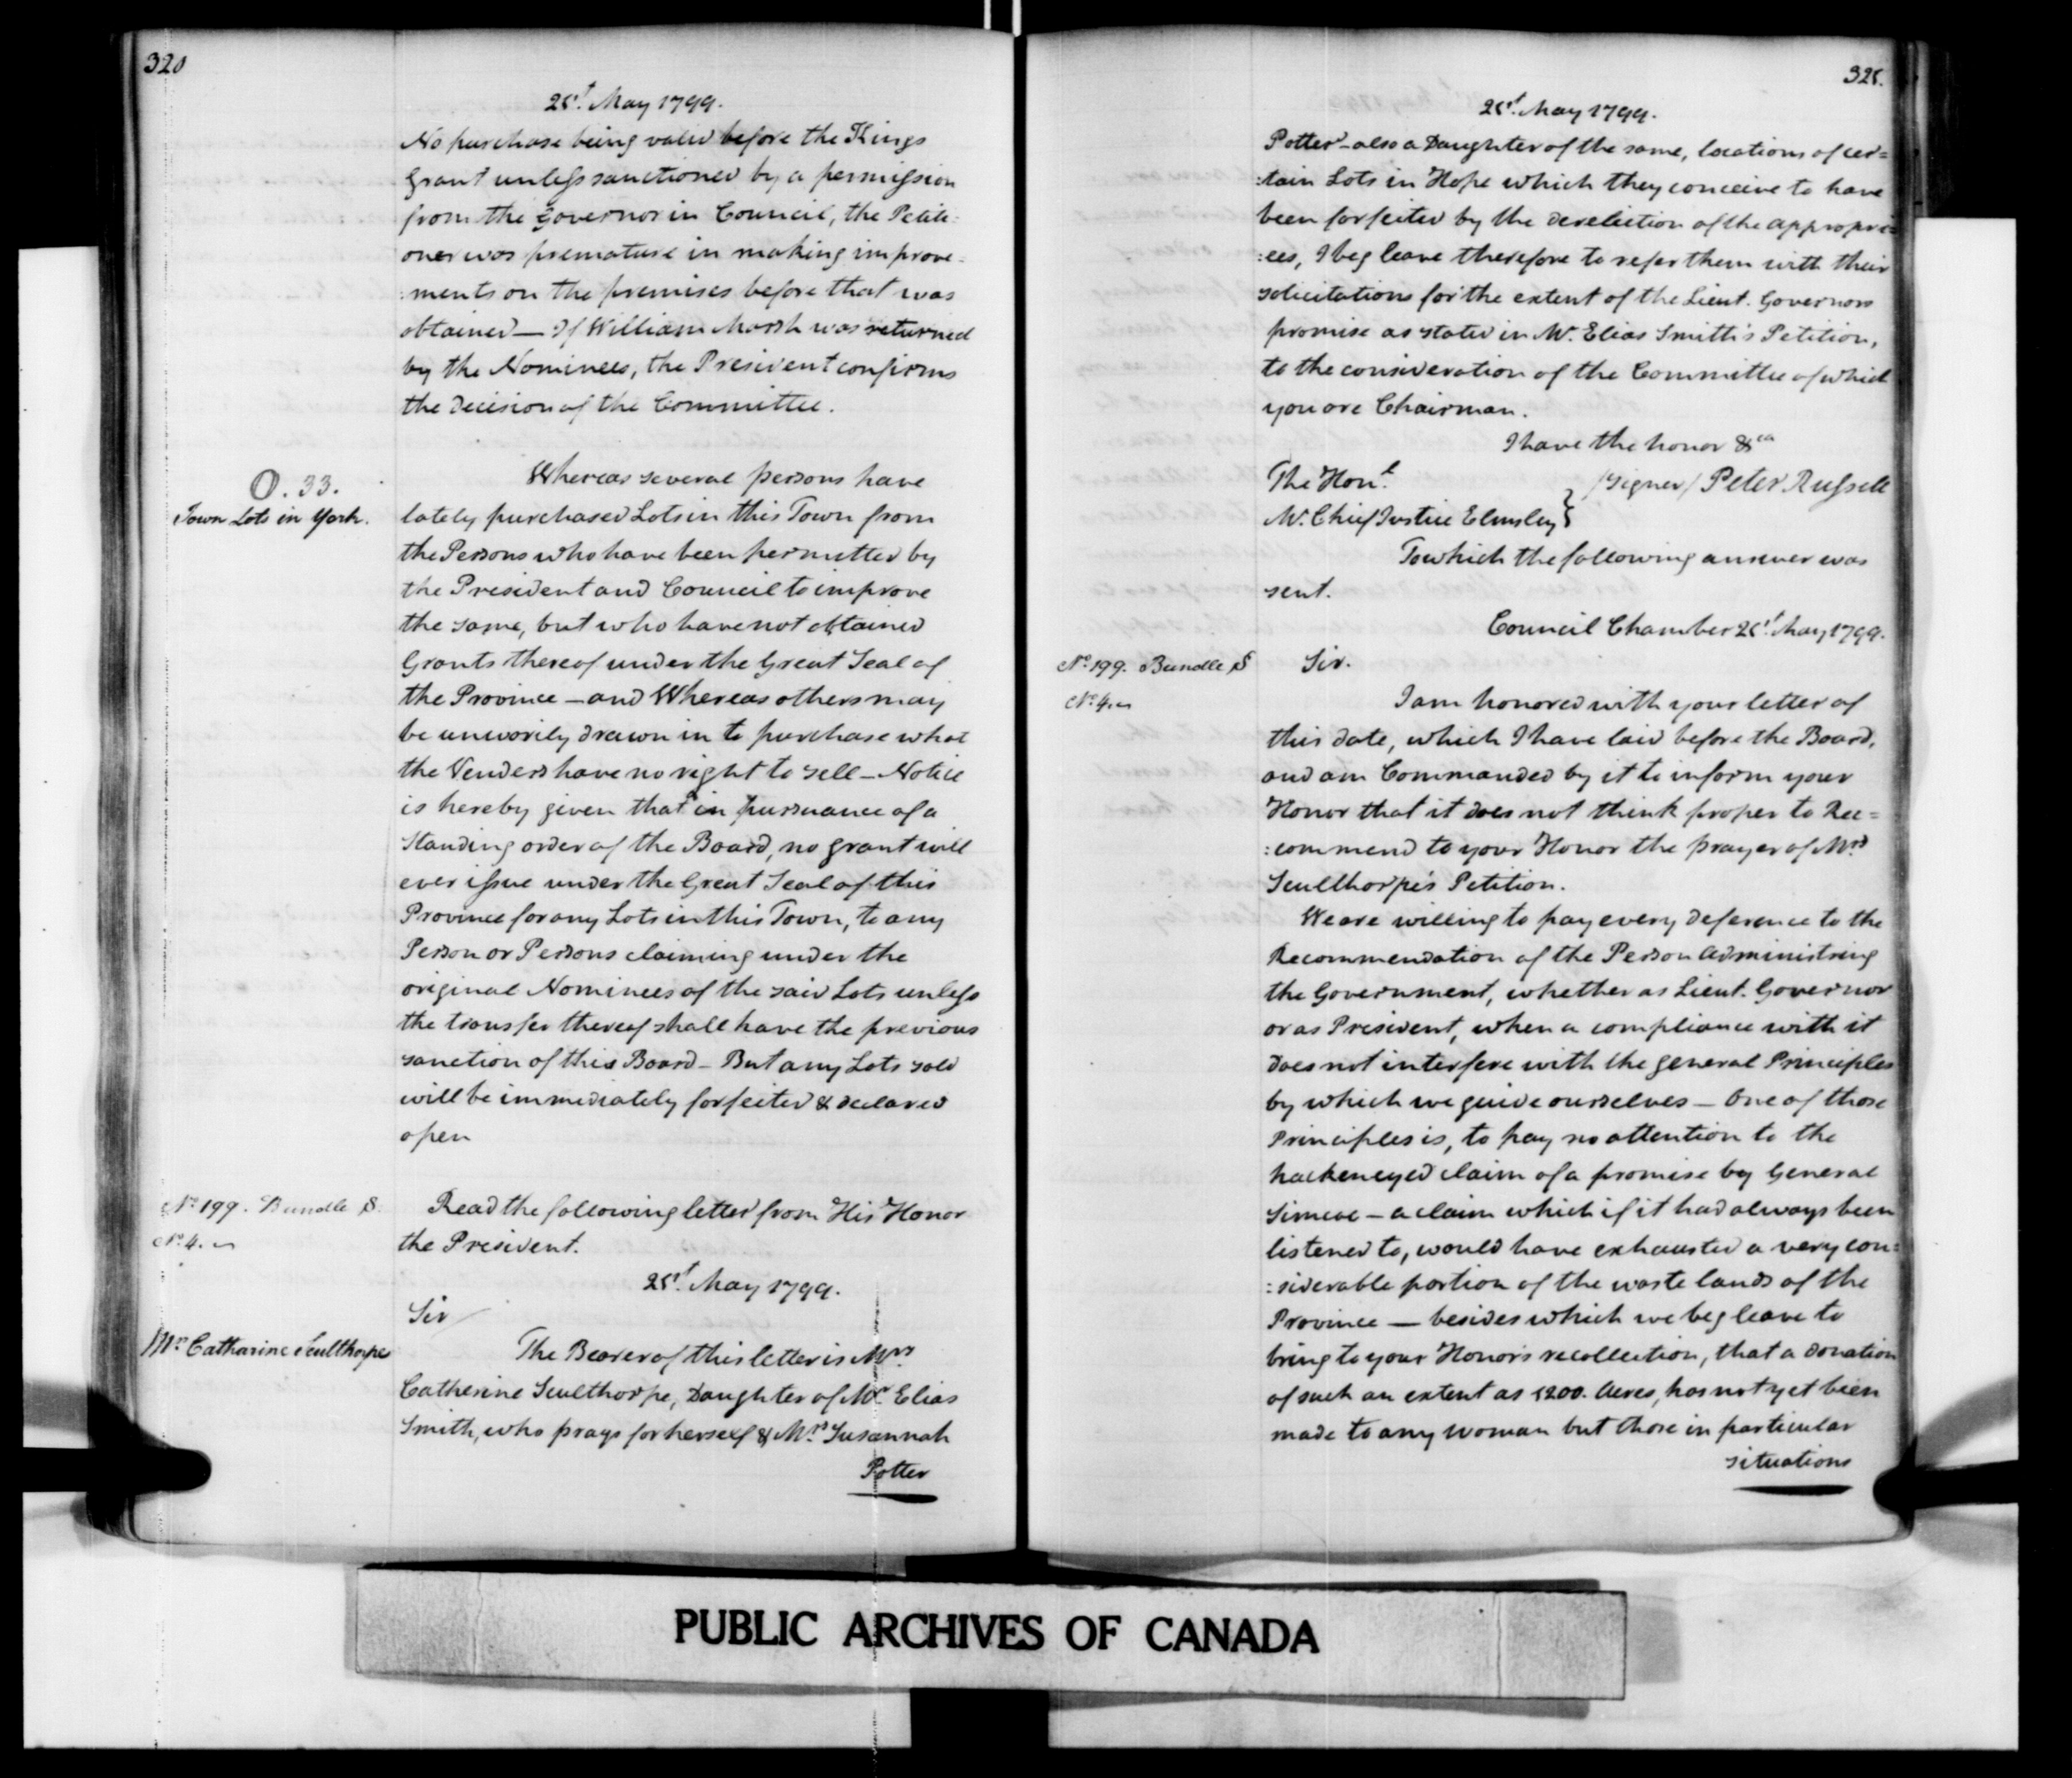 320
21st. May 1799.
No purchase being valid before the Kings
Grant unless sanctioned by a permission
from the Governor in Council, the Petiti:
oner was premature in making improve:
:ments on the premises before that was
obtained — If William Marsh was returned
by the Nominees, the President confirms
the Decision of the Committee.
O. 33.
Town Lots in York.
Whereas several persons have
lately purchased Lots in this Town from
the Persons who have been permitted by
the President and Council to improve
the same, but who have not obtained
Grants thereof under the Great Seal of
the Province — and Whereas others may
be unwarily drawn in to purchase what
the Venders have no right to sell — Notice
is hereby given that in pursuance of a
Standing order of the Board, no grant will
ever issue under the Great Seal of this
Province for any Lots in this Town, to any
Person or Persons claiming under the
original Nominees of the said Lots unless
the transfer thereof shall have the previous
sanction of this Board — But any Lots sold
will be immediately forfeited & declared
open
No. 199. Bundle S.
No. 4.
Read the following letter from His Honor
the President.
21st. May 1799.
Sir
Mrs. Catharine Sculthorpe
The Bearer of this letter is Mrs.
Catherine Sculthorpe, Daughter of Mr. Elias
Smith, who prays for herself & Mrs. Susannah
Potter
321.
21st. May 1799.
Potter — also a Daughter of the same, locations of cer=
:tain Lots in Hope which they conceive to have
been forfeited by the dereliction of the appropri=
:ees, I beg leave therefore to refer them with their
solicitations for the extent of the Lieut. Governors
promise as stated in Mr. Elias Smith's Petition,
to the consideration of the Committee of which
you are Chairman.
I have the honor &ca
The Honl.
(signed) Peter Russell
Mr. Chief Justice Elmsley }
To which the following answer was
sent.
Council Chamber 21st. May 1799.
No. 199. Bundle S
No. 4.
Sir.
I am honored with your letter of
this date, which I have laid before the Board,
and am Commanded by it to inform your
Honor that it does not think proper to Rec=
:commend to your Honor the prayer of Mrs.
Sculthorpe's Petition.
We are willing to pay every deference to the
Recommendation of the Person administring
the Government, whether as Lieut. Governor
or as President, when a compliance with it
does not interfere with the general Principles
by which we guide ourselves — One of those
Principles is, to pay no attention to the
hackeneyed claim of a promise by General
Simcoe — a claim which if it had always been
listened to, would have exhausted a very con=
:siderable portion of the waste lands of the
Province — besides which we beg leave to
bring to your Honor's recollection, that a donation
of such an extent as 1200. Acres, has not yet been
made to any woman but those in particular
situations
PUBLIC ARCHIVES OF CANADA